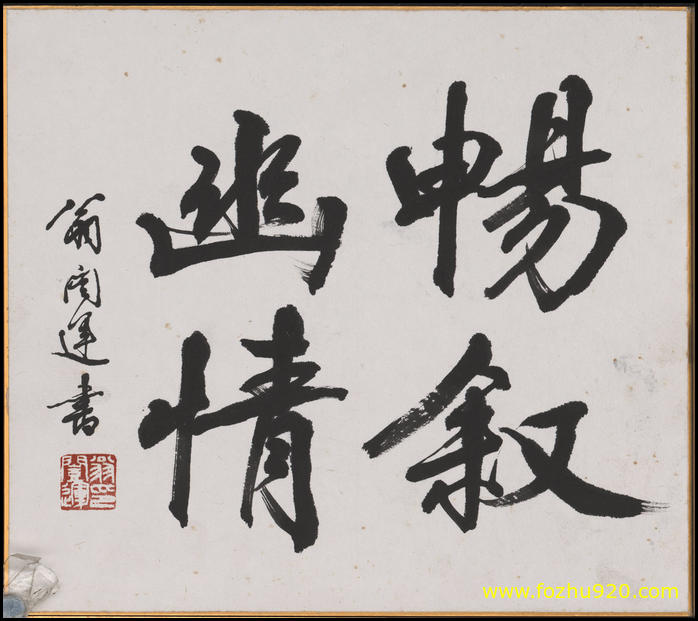 暢叙
幽情
翁闓運書
翁印闓運
www.fozhu920.com